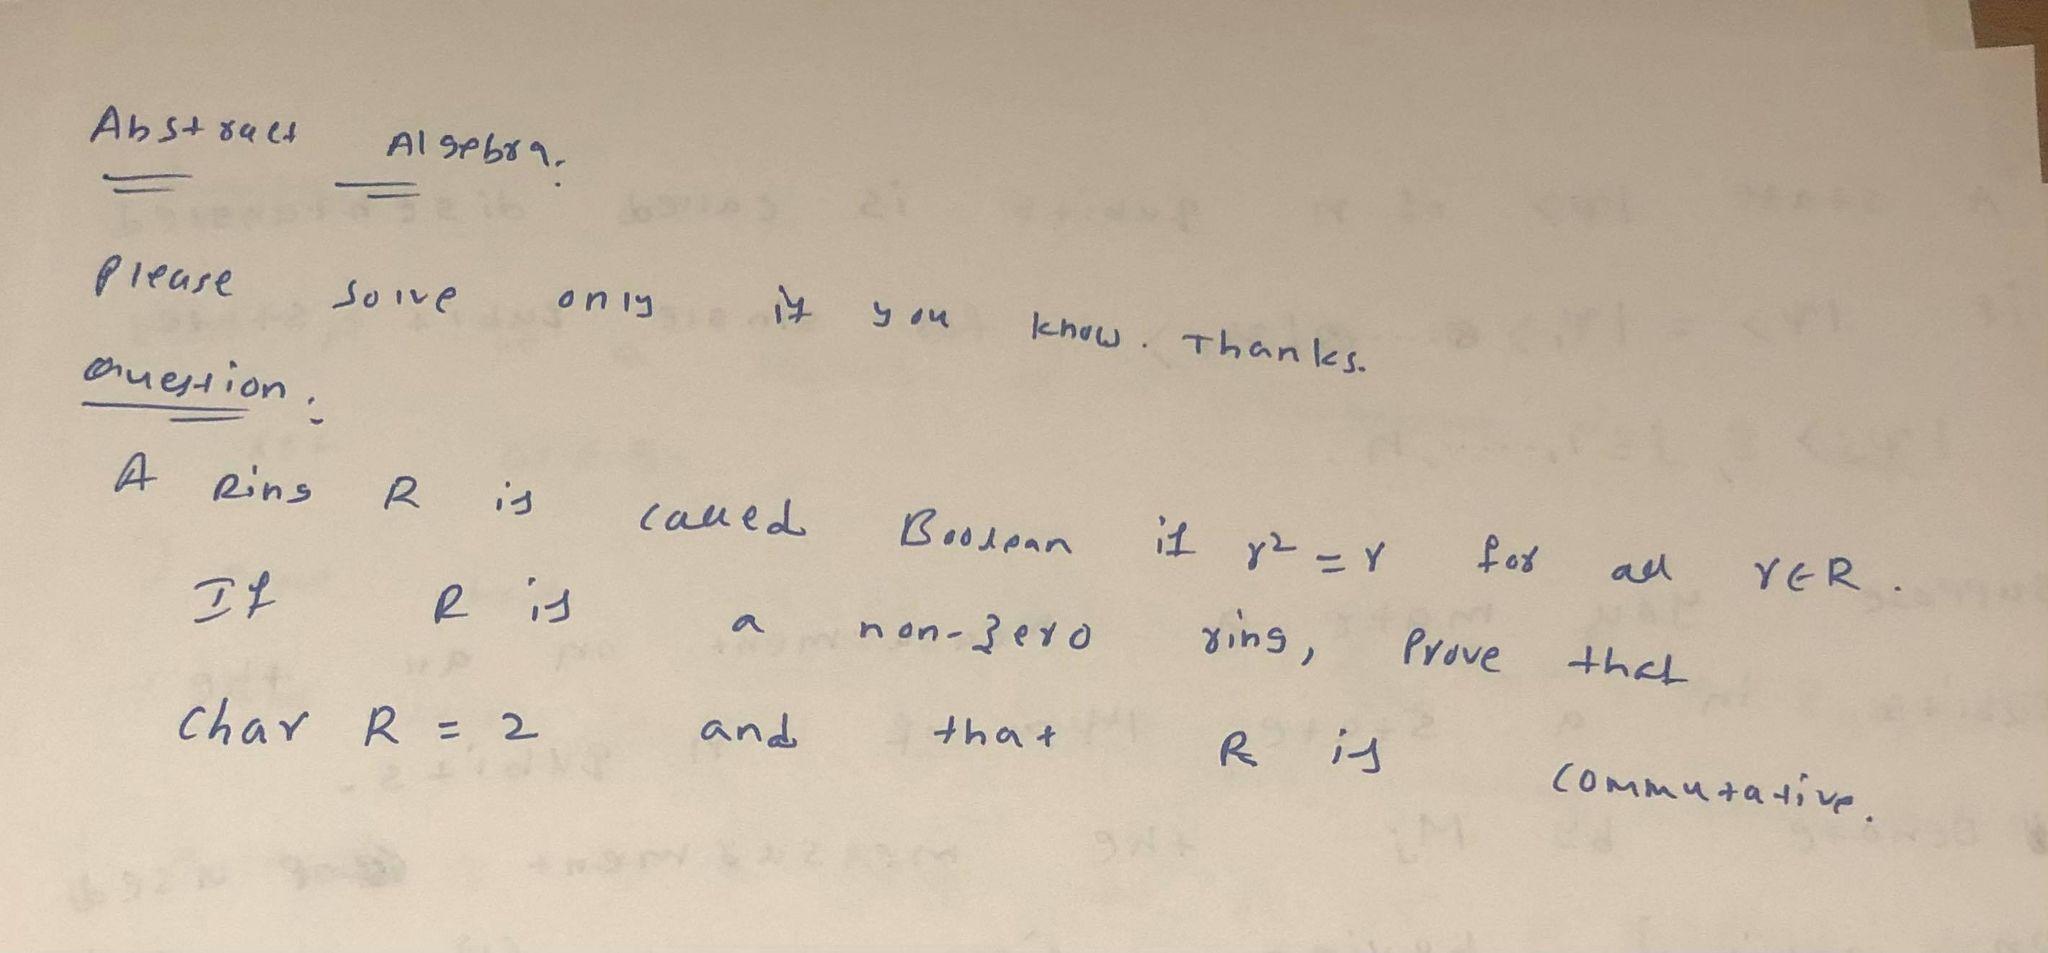 Abstract Algebra.
Please solve only if you know. Thanks.
Question:
A Ring R is called Boolean if r² = r for all r∈R.
If R is a non-zero ring, Prove that
Char R = 2 and that R is commutative.